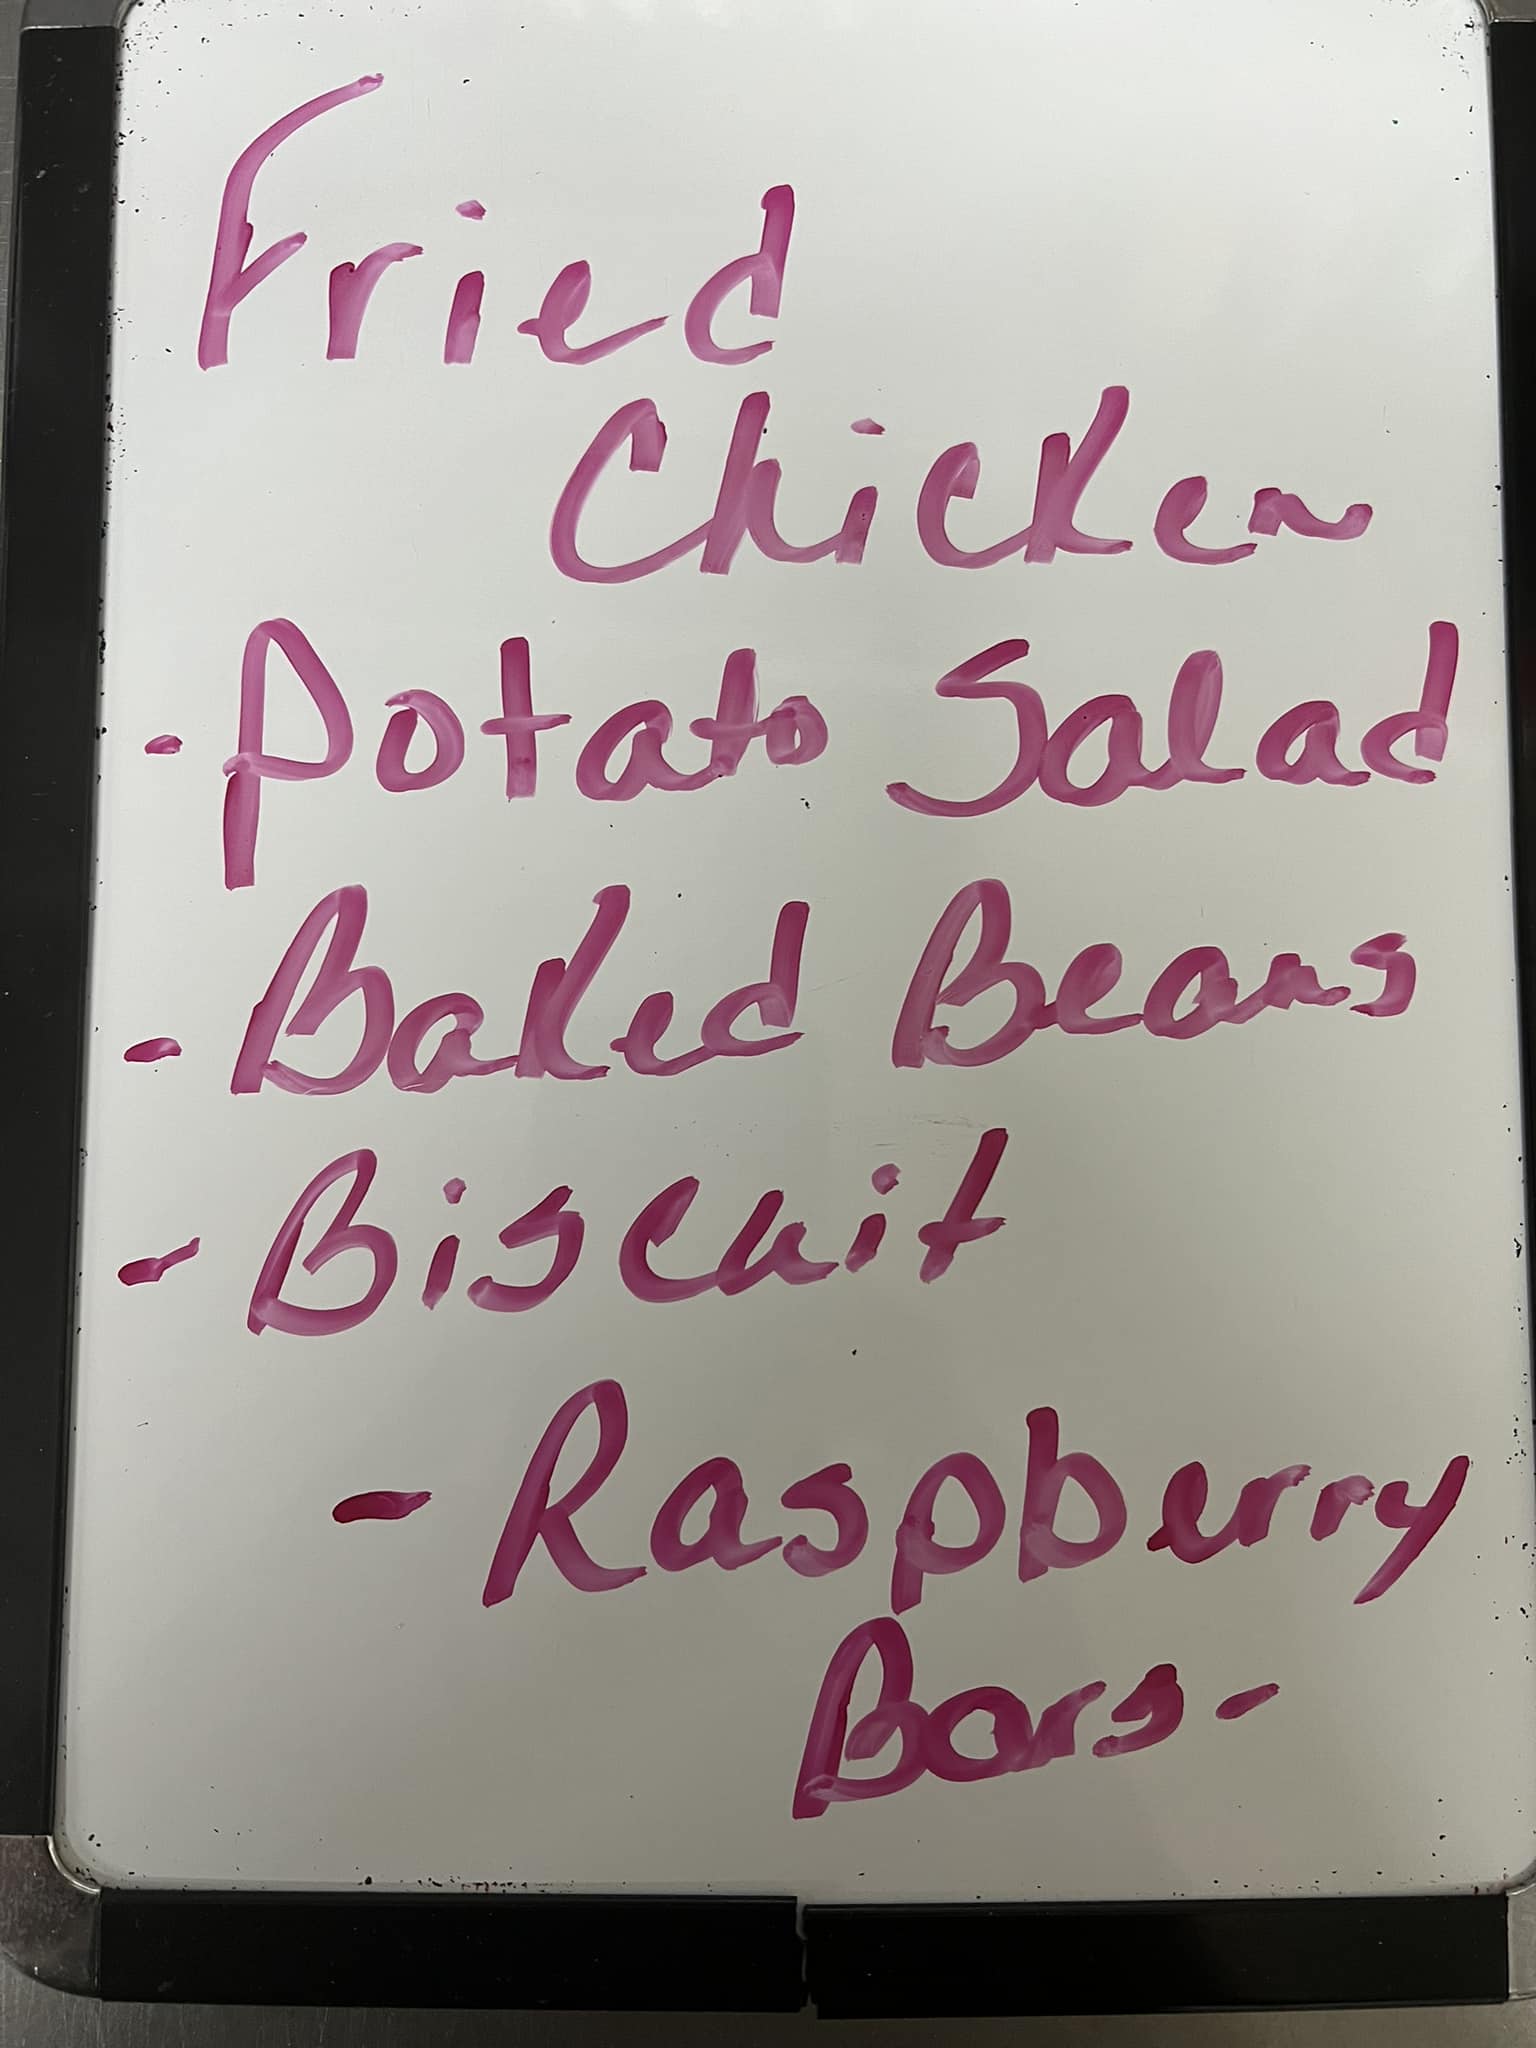 Fried
Chicken
- Potato Salad
- Baked Beans
- Biscuit
- Raspberry
Bars -